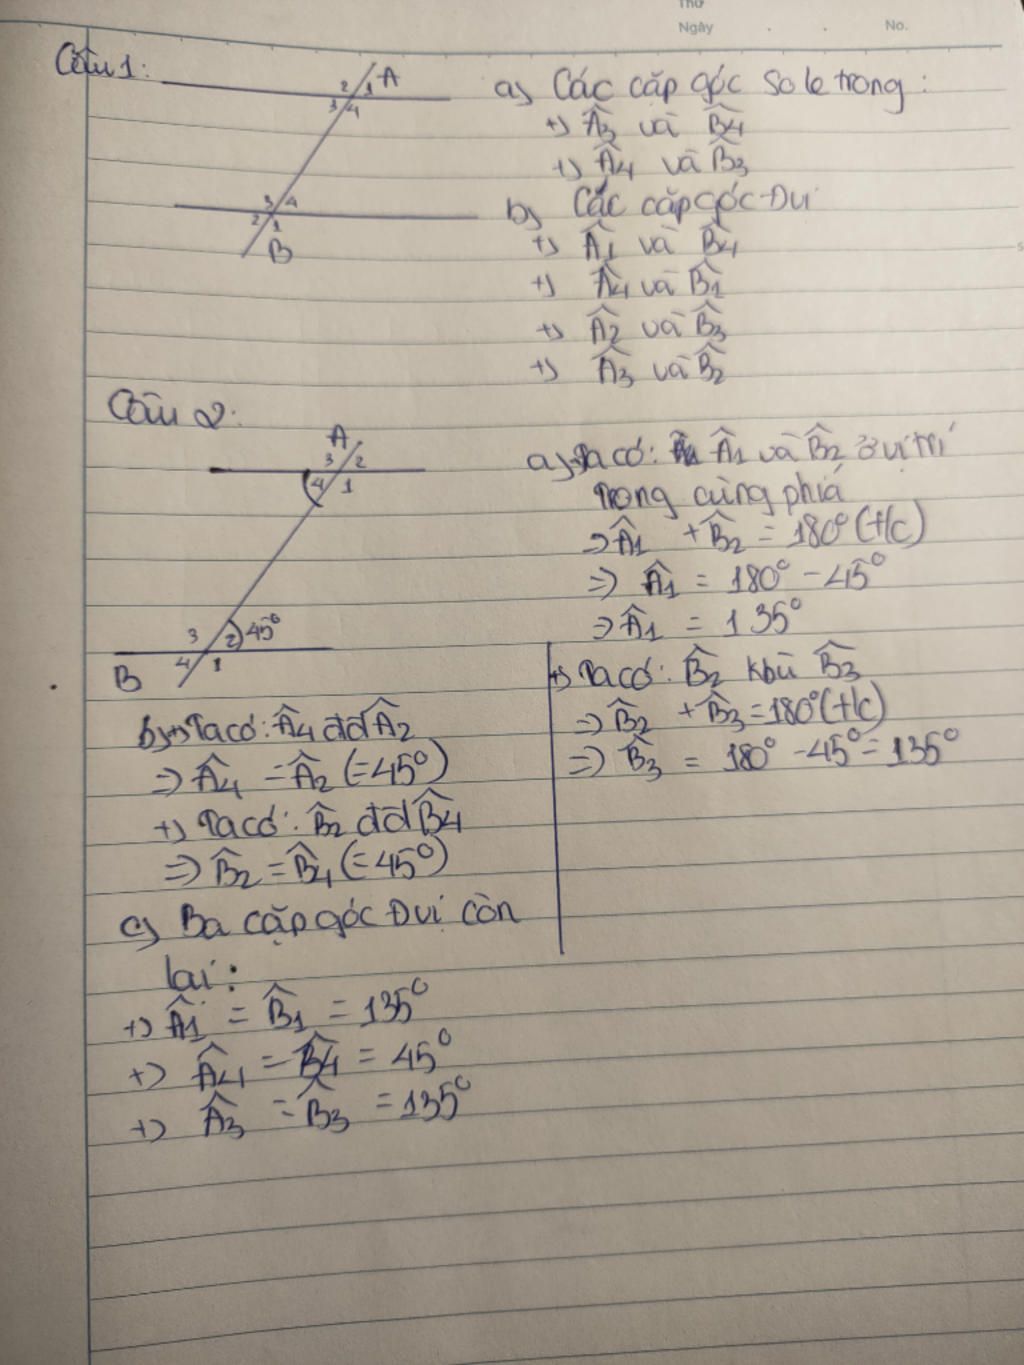 Thứ
Ngày . . No.
Câu 1:
2 1 A
3 4
3 4
2 1
B
a) Các cặp góc so le trong:
+) Â3 và B̂4
+) Â4 và B̂3
b) Các cặp góc ĐVị
+) Â1 và B̂4
+) Â4 và B̂1
+) Â2 và B̂3
+) Â3 và B̂2
Câu 2:
A
3 2
4 1
3 2 45°
4 1
B
a) +) Ta có: Â1 và B̂2 ở vị trí
trong cùng phía
=> Â1 + B̂2 = 180° (t/c)
=> Â1 = 180° - 45°
=> Â1 = 135°
+) Ta có: B̂2 kbù B̂3
=> B̂2 + B̂3 = 180° (t/c)
=> B̂3 = 180° - 45° = 135°
b) +) Ta có: Â4 đđ Â2
=> Â4 = Â2 (= 45°)
+) Ta có: B̂2 đđ B̂4
=> B̂2 = B̂4 (= 45°)
c) Ba cặp góc ĐVị còn
lại:
+) Â1 = B̂1 = 135°
+) Â4 = B̂4 = 45°
+) Â3 = B̂3 = 135°